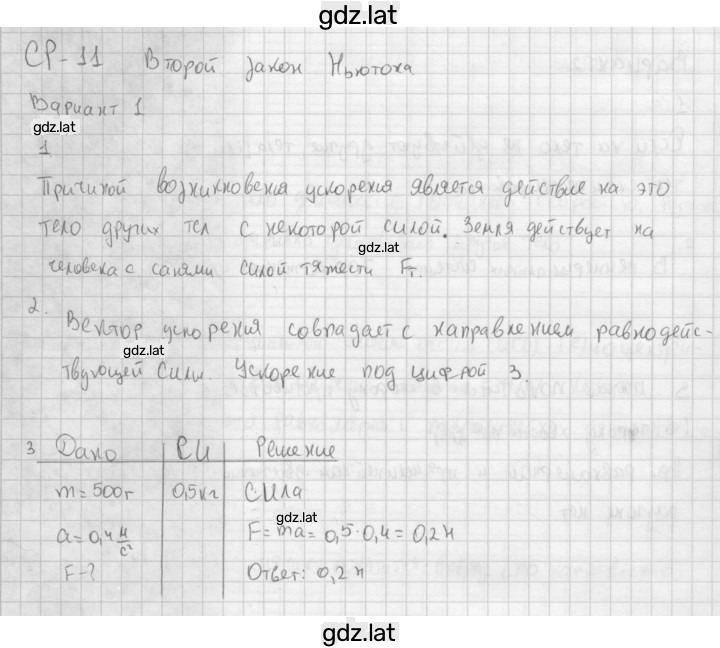 gdz.lat
СР-11 Второй закон Ньютона
Вариант 1
gdz.lat
1
Причиной возникновения ускорения является действие на это
тело других тел с некоторой силой. Земля действует на
gdz.lat
человека с санями силой тяжести Fт.
2.
Вектор ускорения совпадает с направлением равнодейс-
gdz.lat
твующей силы. Ускорение под цифрой 3.
3 Дано СИ Решение
m = 500г 0,5кг Сила
gdz.lat
a = 0,4 м/с² F = ma = 0,5·0,4 = 0,2 н
F - ? Ответ: 0,2 н
gdz.lat